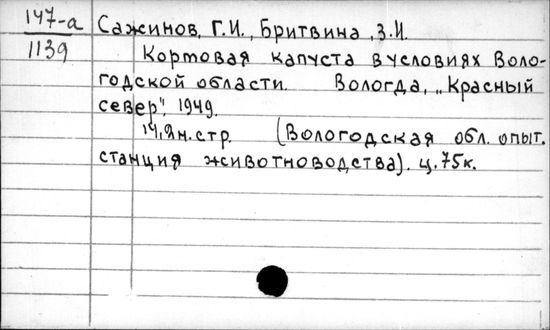 147-а
1139
Сажинов, Г.И., Бритвина, З.И.
Кормовая капуста в условиях Воло-
годской области. Вологда, „Красный
север", 1949.
14,2н.стр. (Вологодская обл. опыт.
станция животноводства). ц.75к.